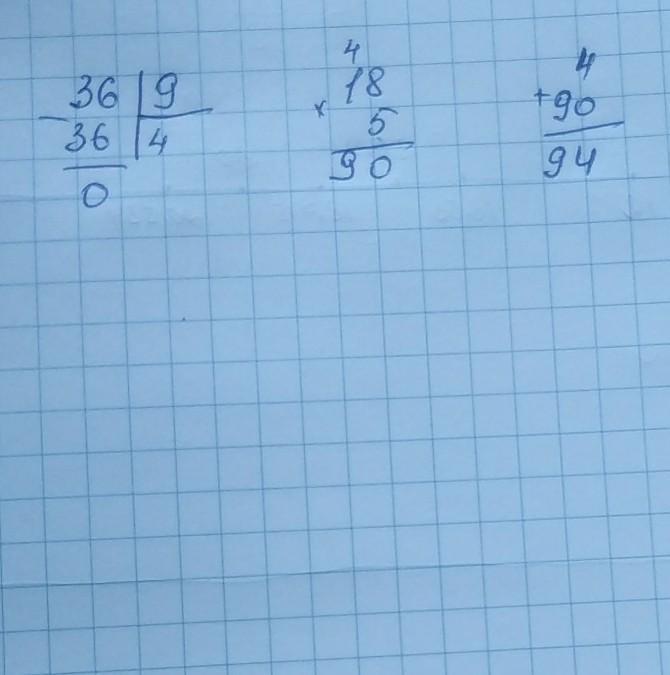 36 9
- 36 4
0
4
18
× 5
90
4
+ 90
94